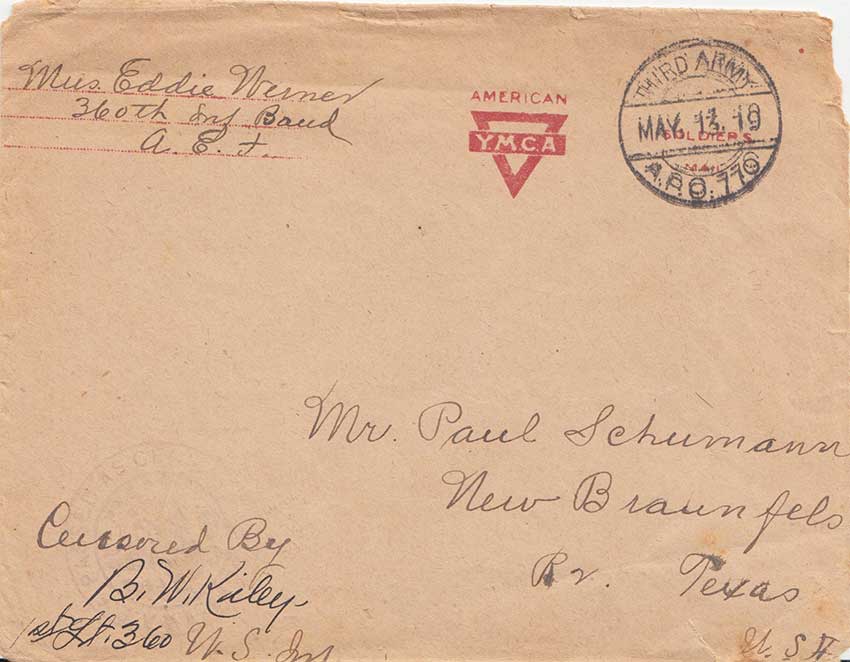 Mus. Eddie Werner
360th Inf Band
A. E. F.
AMERICAN
Y.M.C.A
THIRD ARMY
MAY. 13. 19
SOLDIERS
MAIL
A.P.O. 770
Mr. Paul Schumann
New Braunfels
Texas
U. S. A
Censored By
B. W. Kiley.
1st Lt. 360 U. S. Inf